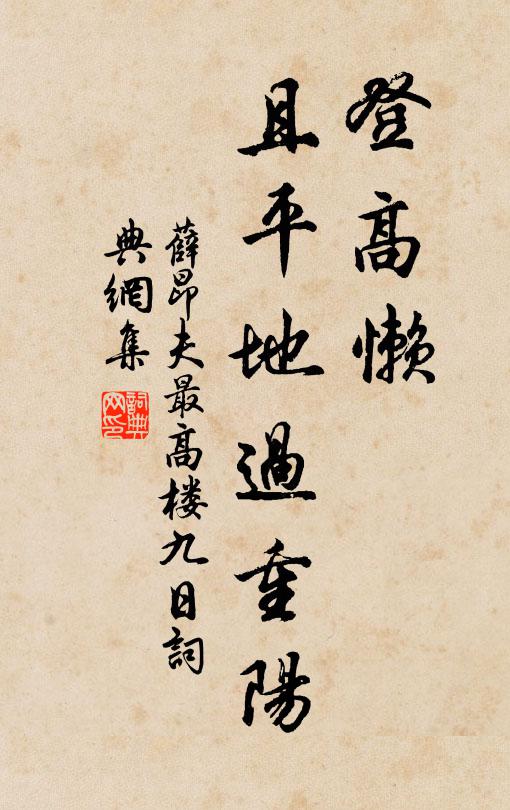 登高懶
且平地過重陽
薛昂夫最高楼九日詞
典網集
詞典网印